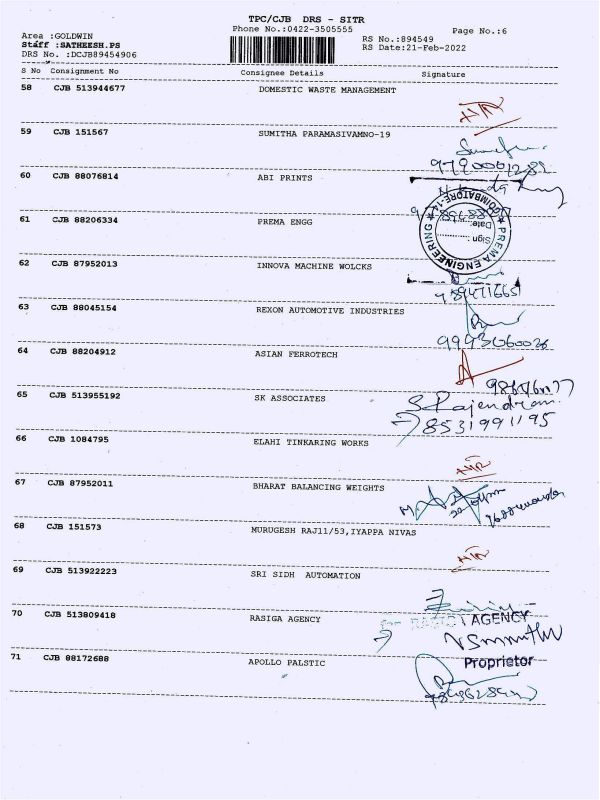 TPC/CJB DRS - SITR
Phone No.:0422-3505555
Page No.:6
Area :GOLDWIN
RS No.:894549
Staff :SATHEESH.PS
RS Date:21-Feb-2022
DRS No. :DCJB89454906
S No Consignment No Consignee Details Signature
58 CJB 513944677 DOMESTIC WASTE MANAGEMENT
59 CJB 151567 SUMITHA PARAMASIVAMNO-19
60 CJB 88076814 ABI PRINTS
61 CJB 88206334 PREMA ENGG
PREMA ENGINEERING
COIMBATORE-14
Date:
Sign :
62 CJB 87952013 INNOVA MACHINE WOLCKS
63 CJB 88045154 REXON AUTOMOTIVE INDUSTRIES
64 CJB 88204912 ASIAN FERROTECH
65 CJB 513955192 SK ASSOCIATES
S. Rajendran.
8531991195
66 CJB 1084795 ELAHI TINKARING WORKS
67 CJB 87952011 BHARAT BALANCING WEIGHTS
68 CJB 151573 MURUGESH RAJ11/53,IYAPPA NIVAS
69 CJB 513922223 SRI SIDH AUTOMATION
70 CJB 513809418 RASIGA AGENCY
AGENCY
Proprietor
71 CJB 88172688 APOLLO PALSTIC